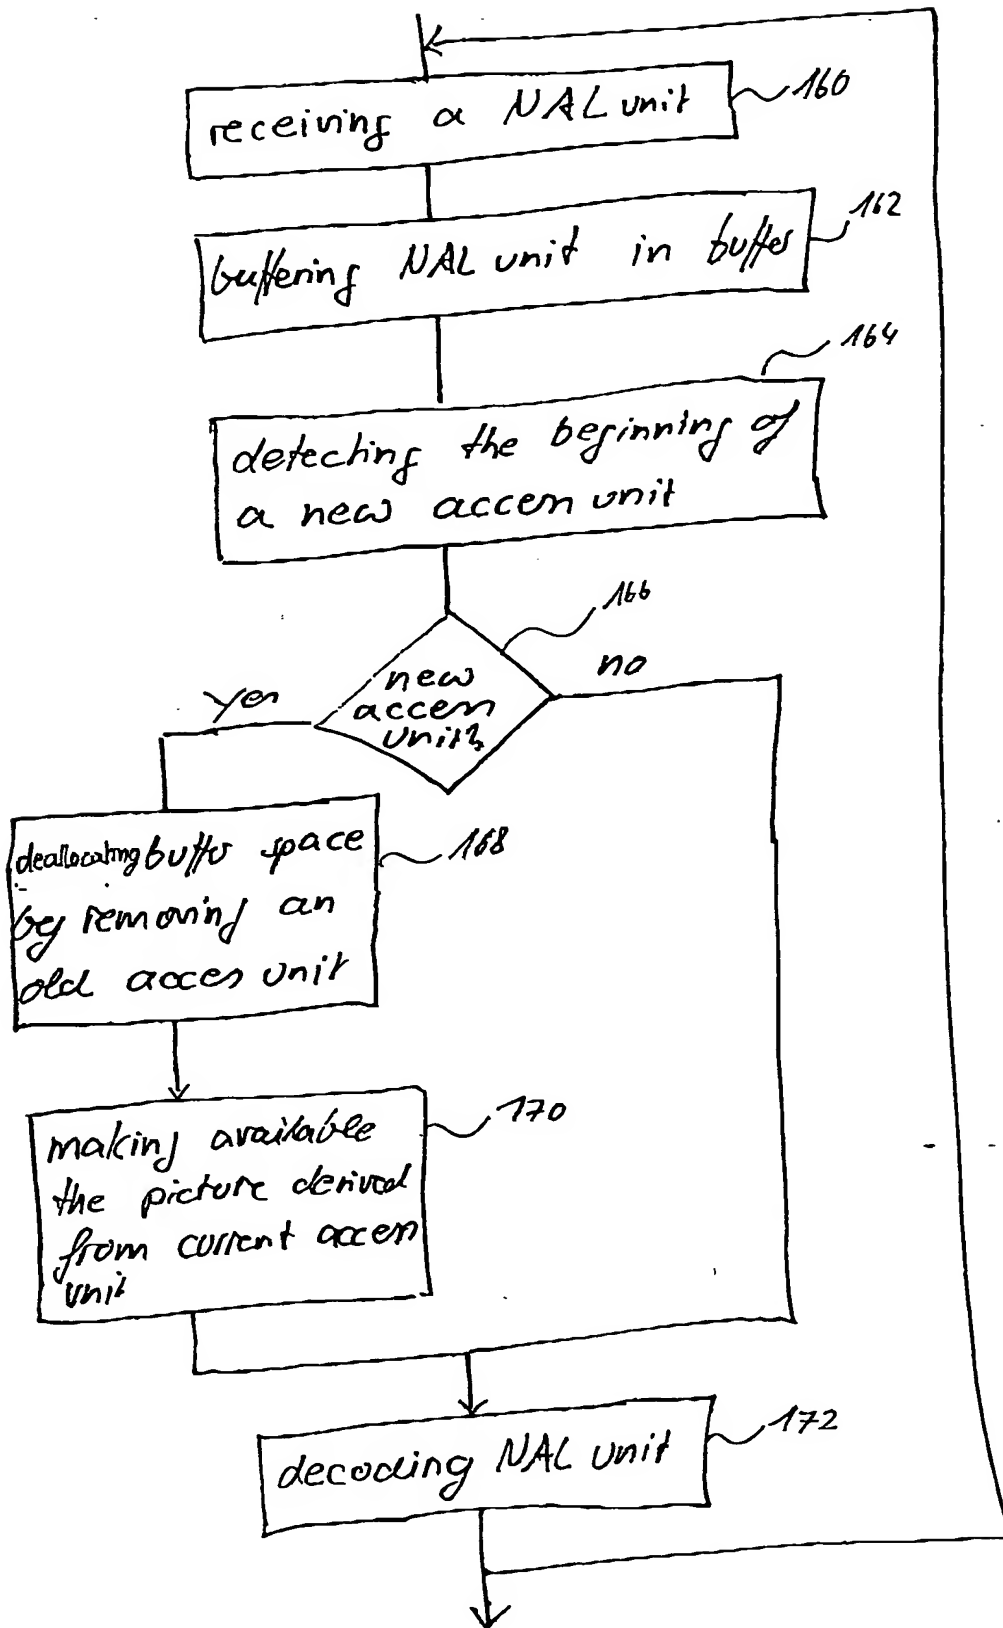 receiving a NAL unit
160
buffering NAL unit in buffer
162
164
detecting the beginning of
a new access unit
166
new
access
unit?
yes
no
deallocating buffer space
by removing an
old acces unit
168
making available
the picture derived
from current access
unit
170
decoding NAL unit
172